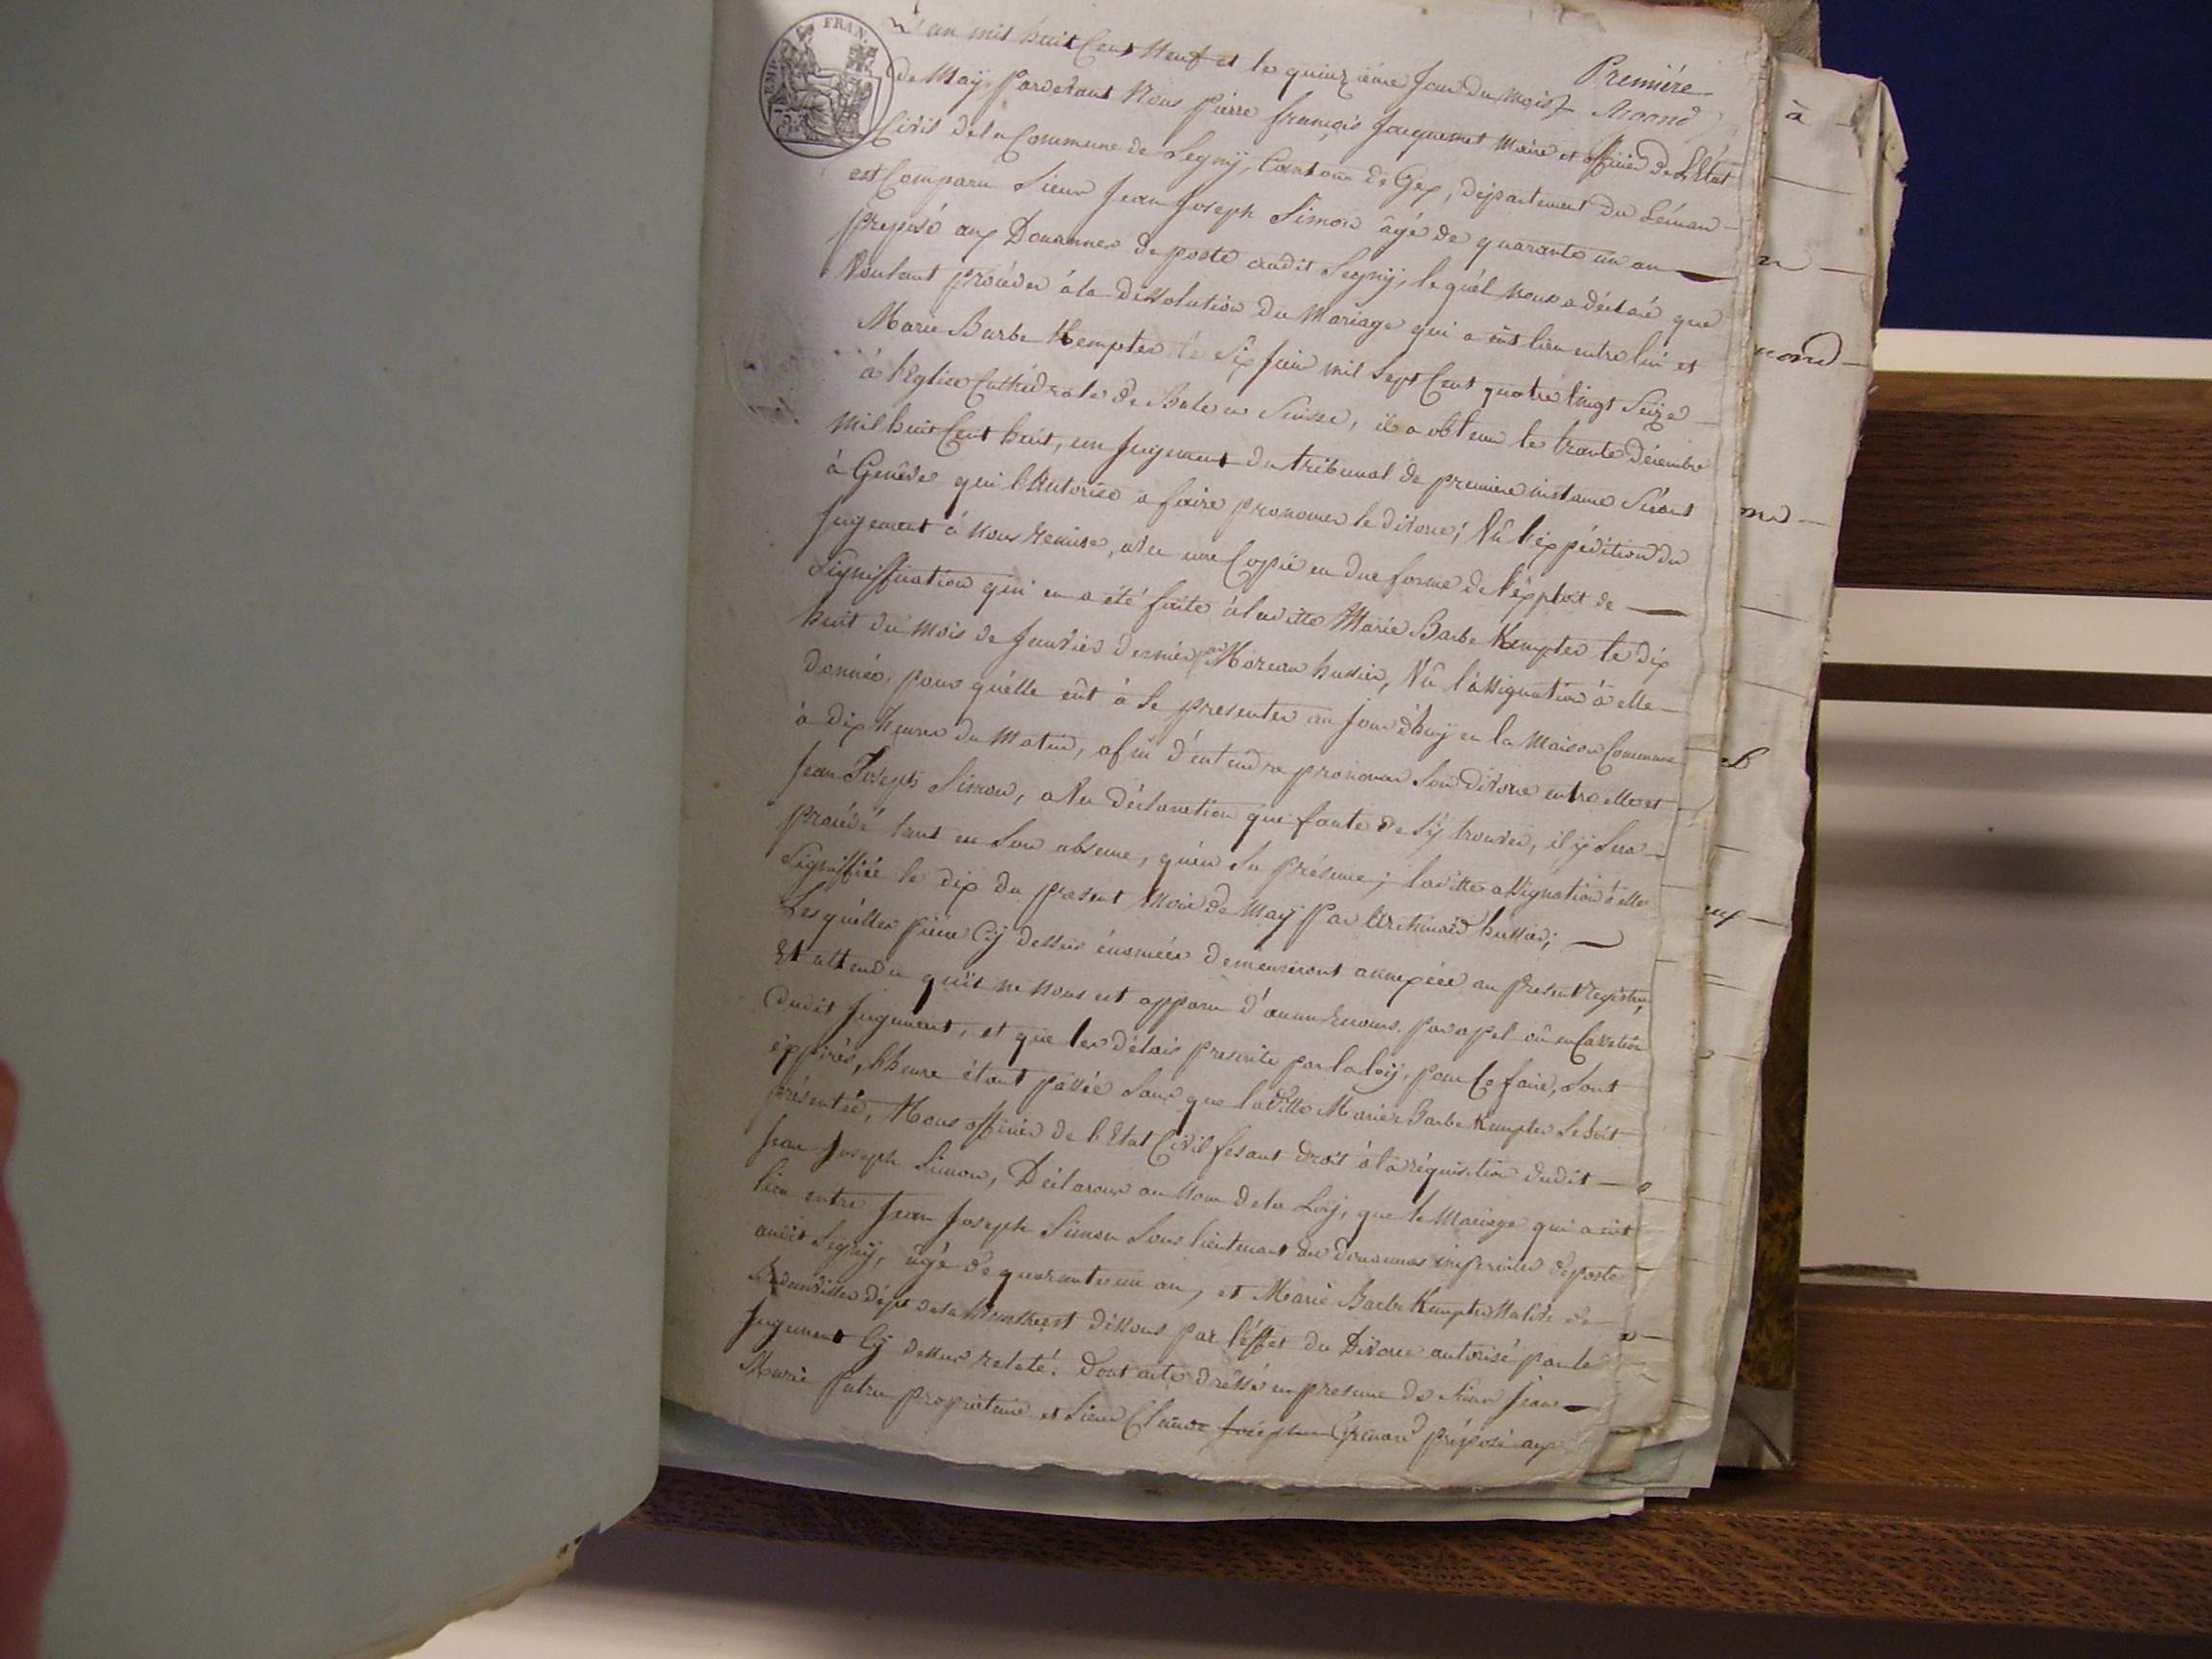 EMP. FRAN.
L'an mil huit Cent Neuf et le quinzième Jour du mois Première
de Maÿ, Pardevant Nous Pierre françois Jacquemet Maire et officier de L'État
Civil de la Commune de Segnÿ, Canton de Gex, département du Léman
est Comparu Sieur Jean Joseph Simon âgé de quarante un an
préposé aux Douannes de poste audit Segnÿ, lequél nous a déclaré que
Voulant procéder à la dissolution du Mariage qui a eüt lieu entre lui et
Marie Barbe Kempter le Six Juin mil Sept Cent quatre Vingt Seize
à l'Eglise Cathédrale de Bale en Suisse, il a obtenu le trante Décembre
Mil huit Cent huit, un Jugement du tribunal de première instance Séant
à Genève qui l'Autorise a faire prononcer le divorce; Vû l'éxpédition du
Jugement à nous remise, avec une Copie en due forme de l'éxploit de
Signiffication qui en a été faite à laditte Marie Barbe Kempter le dix
huit du mois de Janvier dernier par Moreau hussier, Vû l'assignation à elle
donnée, pour quélle eût à Se presenter au jour d'huÿ en la Maison Commune
à dix heures du Matin, afin d'entendre prononcer Son divorce entre elle et
Jean Joseph Simon, avec déclaration que faute de s'ÿ trouver, il ÿ Sera
procédé tant en Son absence, qu'en Sa présence; laditte assignation à elle
Signiffiée le dix du present Mois de Maÿ Par hussier;
Lesquélles pièces Cÿ dessus énoncées demeureront annexées au present registre,
Et attendu qu'il ne nous est apparu d'aucun recours par apel où en Cassation
dudit Jugement, et que les délais prescrits par la loÿ, pour Ce faire, Sont
éxpirés, l'heure étant passée Sans que laditte Marie Barbe Kempter Se Soit
présentée, Nous officier de l'Etat Civil fesant droit à la réquisition dudit
Jean Joseph Simon, Déclarons au nom de la Loÿ, que le Mariage qui a eüt
lieu entre Jean Joseph Simon Sous lieutenant des douannes impériales de poste
audit Segnÿ, âgé de quarante un an, et Marie Barbe Kempter Native de
dépt de la Meurthe est dissous par l'éffet du Divorce autorisé par le
Jugement Cÿ dessus relaté. Dont acte dréssé en presence de Sieur Jean
Marie Patru propriétaire et Sieur Claude Joseph préposé aux